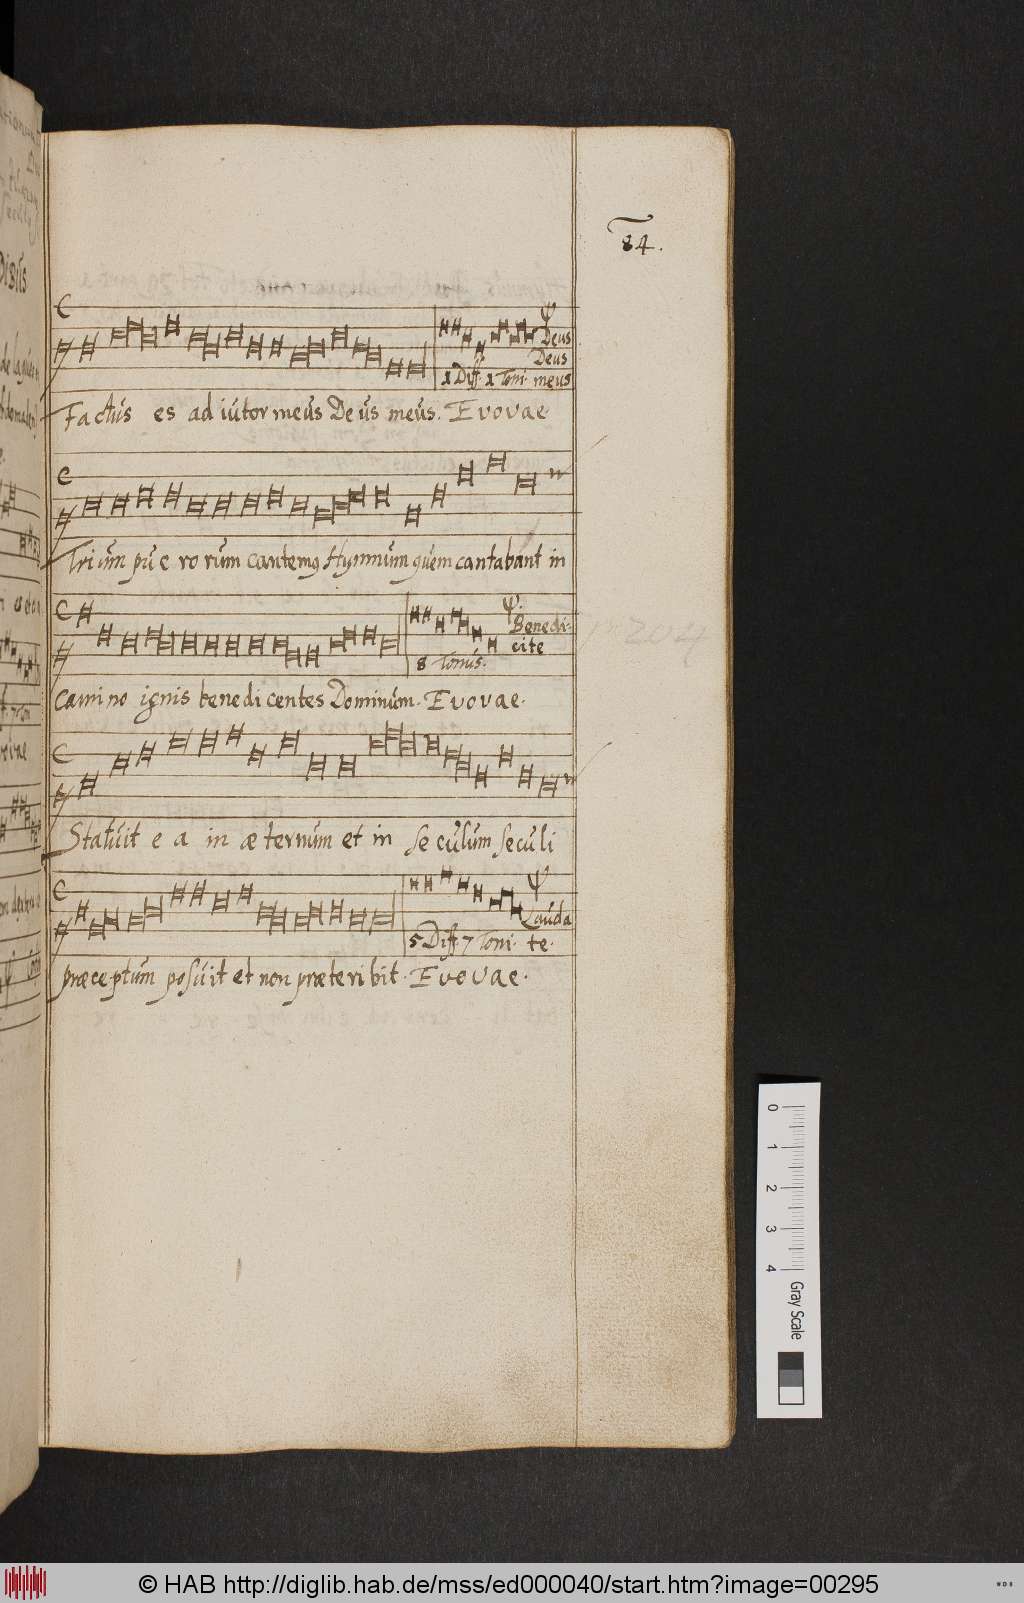 84.
Ψ Deus
Deus
1 Diff. 1 Toni. meus
Factus es ad iutor meus Deus meus. Evovae
Trium pue ro rum cantemus Hymnum quem cantabant in
Ψ. Benedi-
8 Tonus. cite
Camino ignis benedi centes Dominum. Evovae.
Statuit e a in æ ternum et in se culum seculi
Ψ
Lauda
5 Diff. 7 Toni. te.
præce ptum posuit et non præteri bit. Evovae.
0 1 2 3 4 Gray Scale
© HAB http://diglib.hab.de/mss/ed000040/start.htm?image=00295